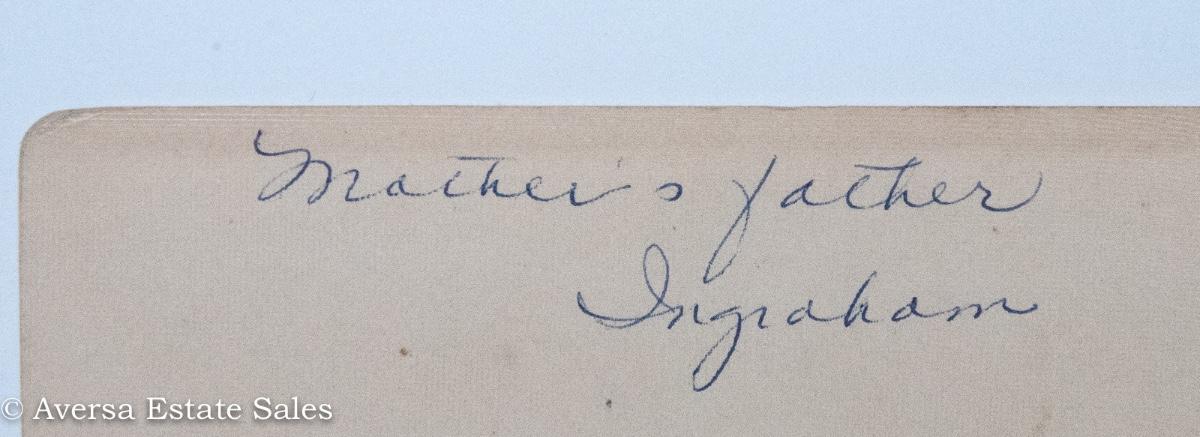 Mother's father
Ingraham
© Aversa Estate Sales